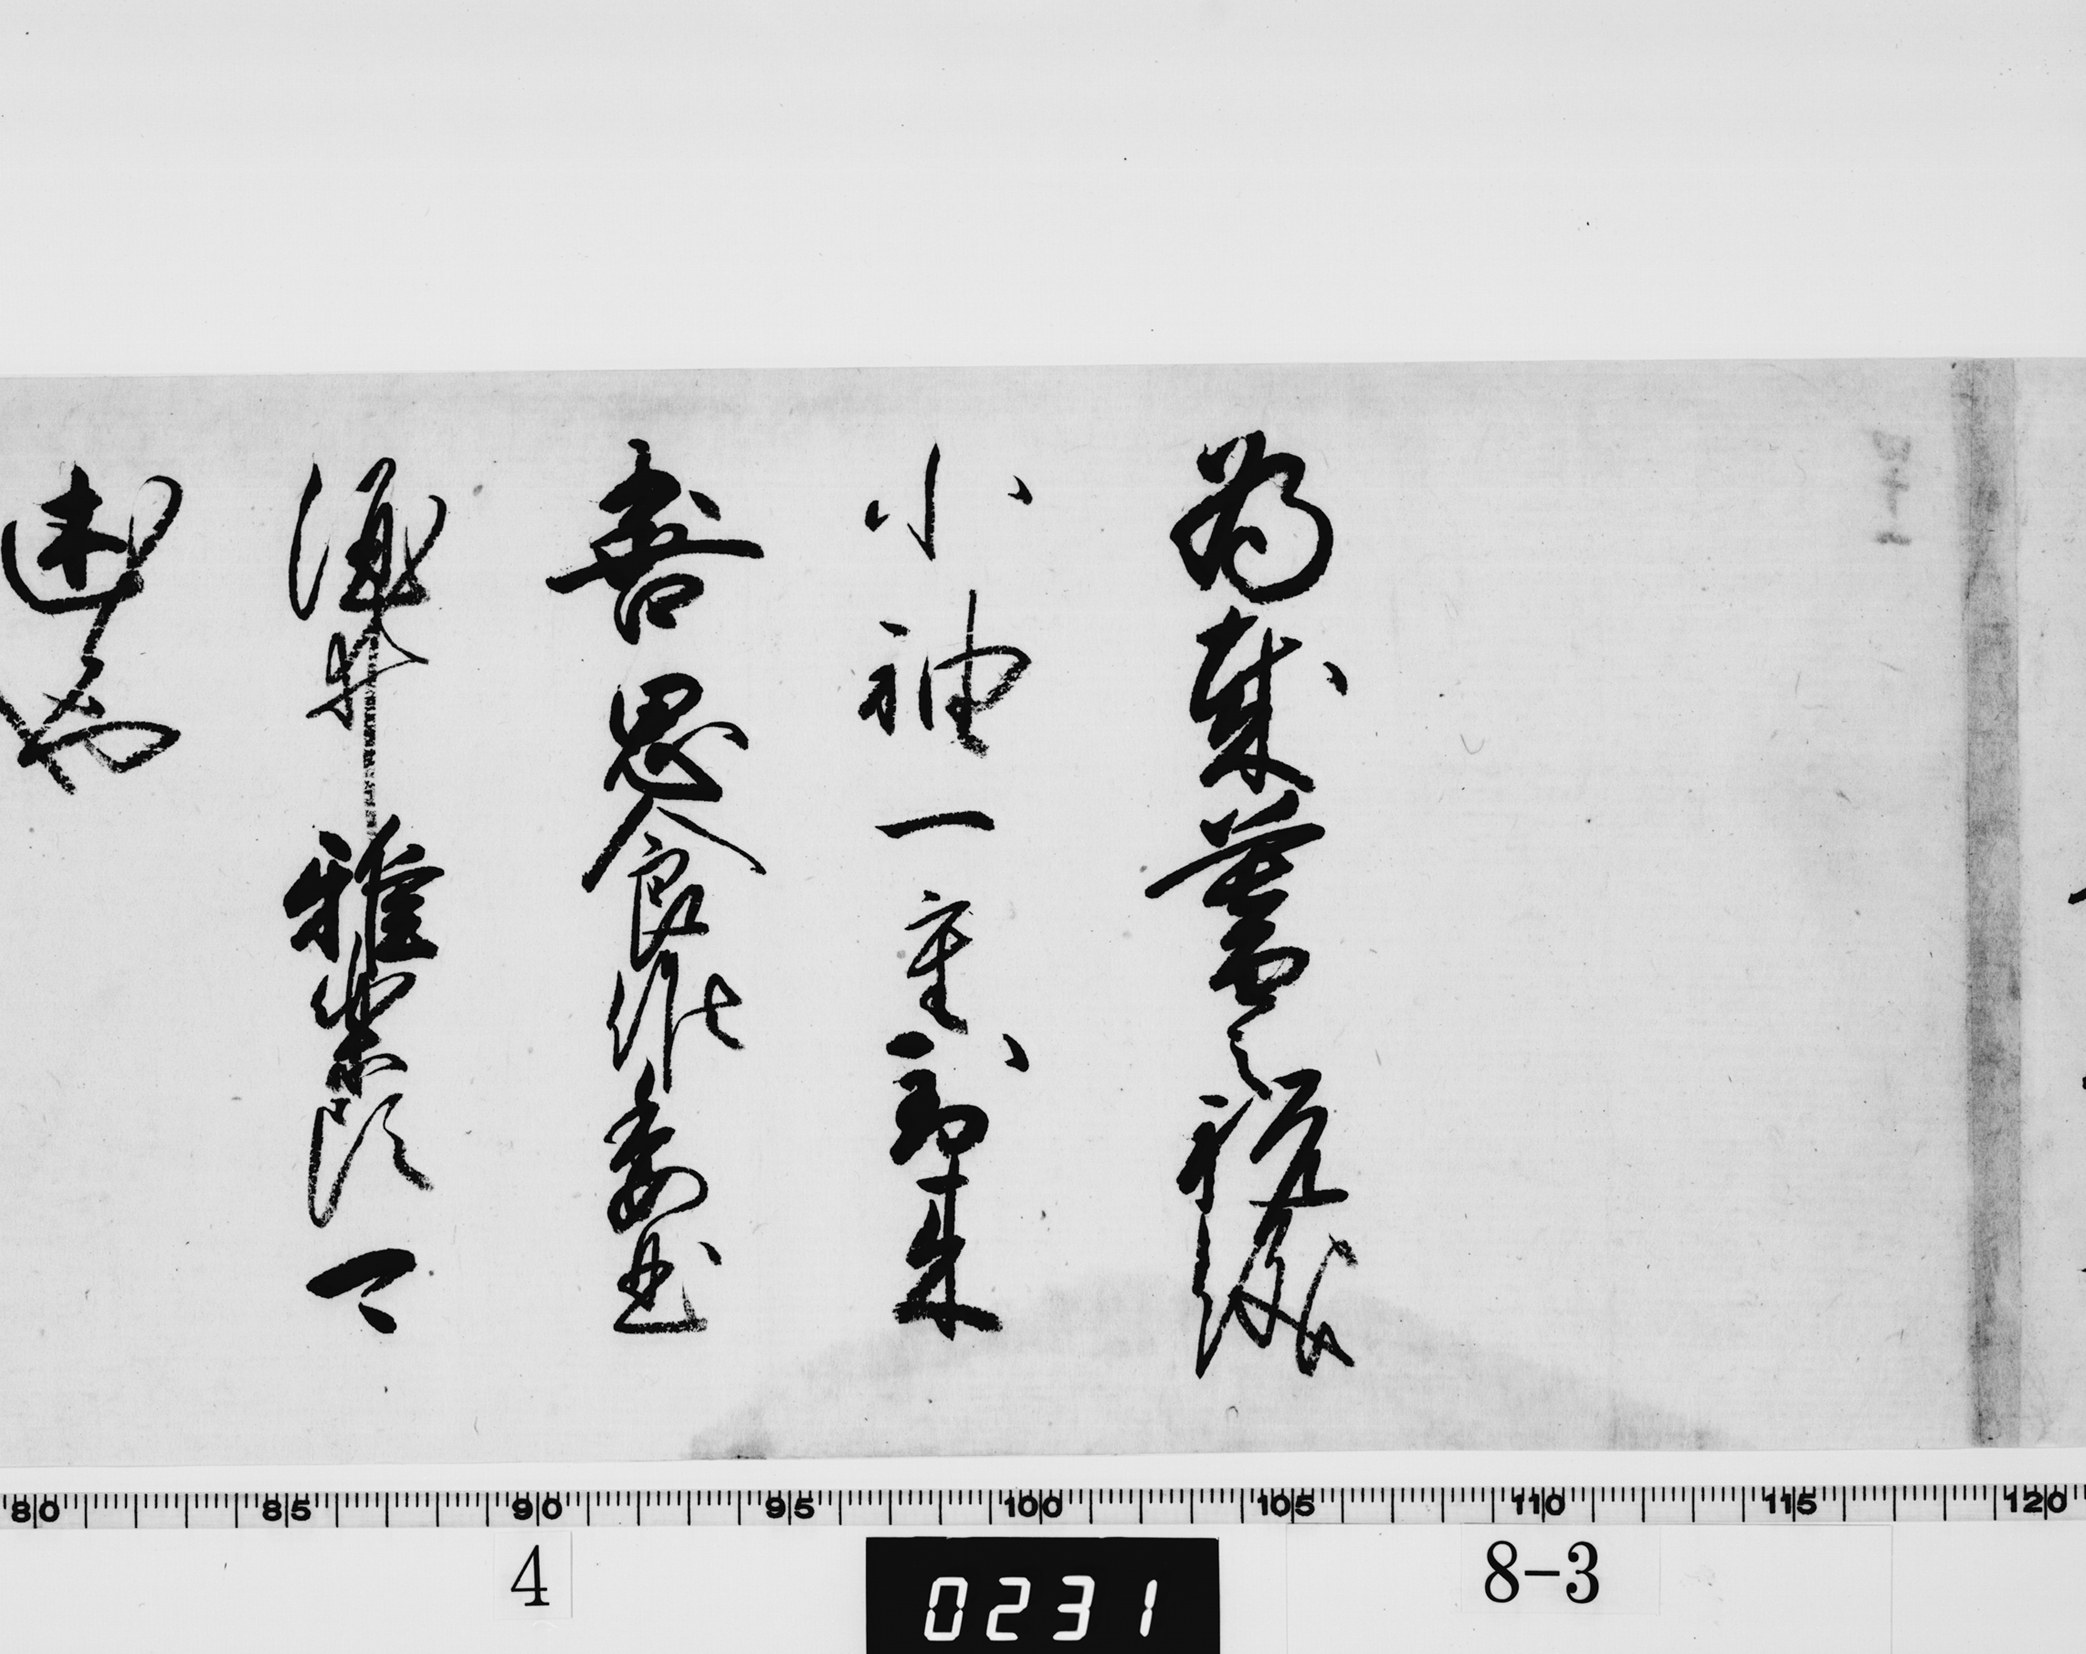 為歳暮之祝儀
小袖一重到来
喜思食候委曲
酒井雅楽頭可
述也
80 85 90 95 100 105 110 115 120
4
0231
8-3